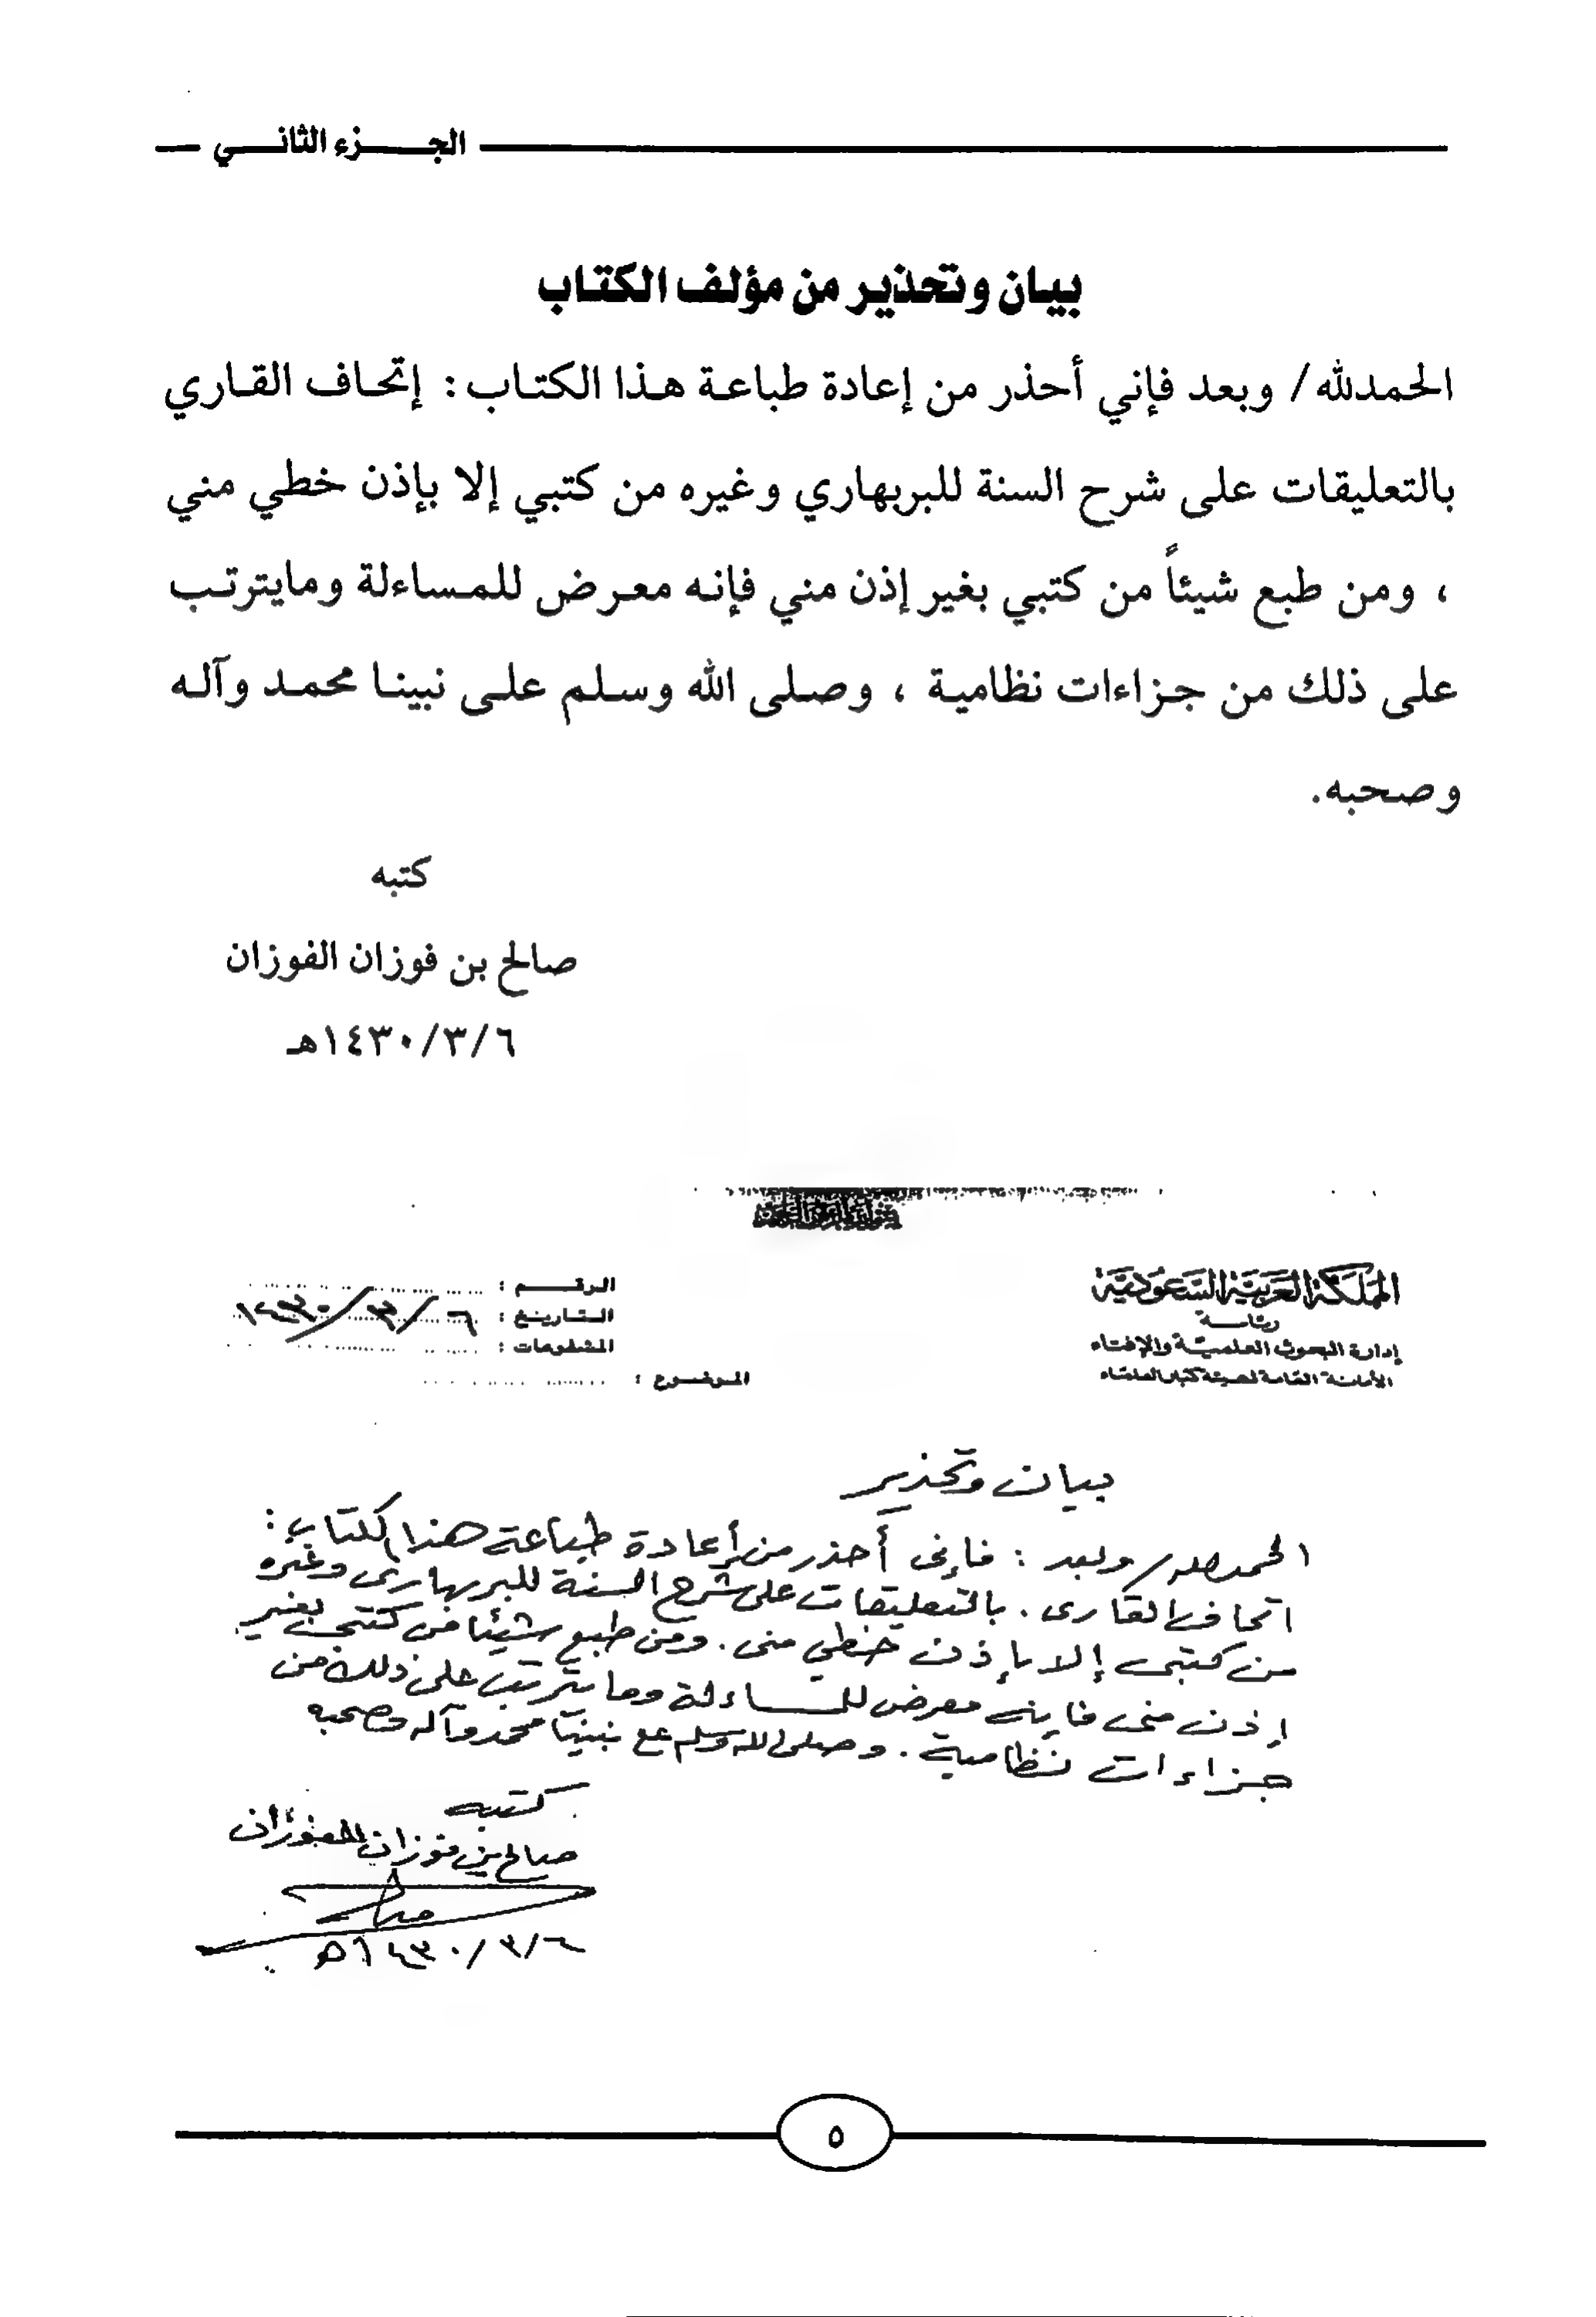 الجـــزء الثانـــي
بيان وتحذير من مؤلف الكتاب
الحمدلله / وبعد فإني أحذر من إعادة طباعة هذا الكتاب : إتحاف القاري
بالتعليقات على شرح السنة للبربهاري وغيره من كتبي إلا بإذن خطي مني
، ومن طبع شيئاً من كتبي بغير إذن مني فإنه معرض للمساءلة ومايترتب
على ذلك من جزاءات نظامية ، وصلى الله وسلم على نبينا محمد وآله
وصحبه.
كتبه
صالح بن فوزان الفوزان
١٤٣٠/٣/٦هـ
المملكة العربية السعودية
رئاسة
إدارة البحوث العلمية والإفتاء
الأمانة العامة لهيئة كبار العلماء
الرقم :
التاريخ : ١٤٣٠/٣/٦
المشفوعات :
الموضوع :
بيان وتحذير
الحمد لله / وبعد : فإنى أحذر من إعادة طباعة هذا الكتاب :
اتحاف القارى . بالتعليقات على شرح السنة للبربهارى وغيره
من كتبى إلا بإذن خطي منى . ومن طبع شيئا من كتبى بغير
إذن منى فإنه معرض للمساءلة وما يترتب على ذلك من
جزاءات نظامية . وصلى الله وسلم على نبينا محمد وآله وصحبه
كتبه
صالح بن فوزان الفوزان
١٤٣٠/٣/٦ هـ
٥